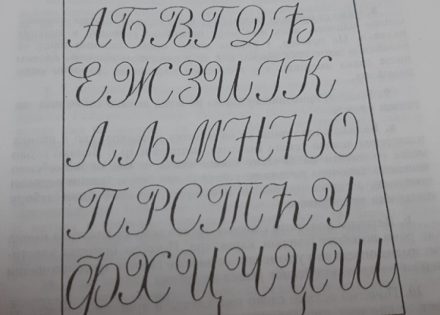 АБВГДЂ
ЕЖЗИЈК
ЛЉМНЊО
ПРСТЋУ
ФХЦЧЏШ